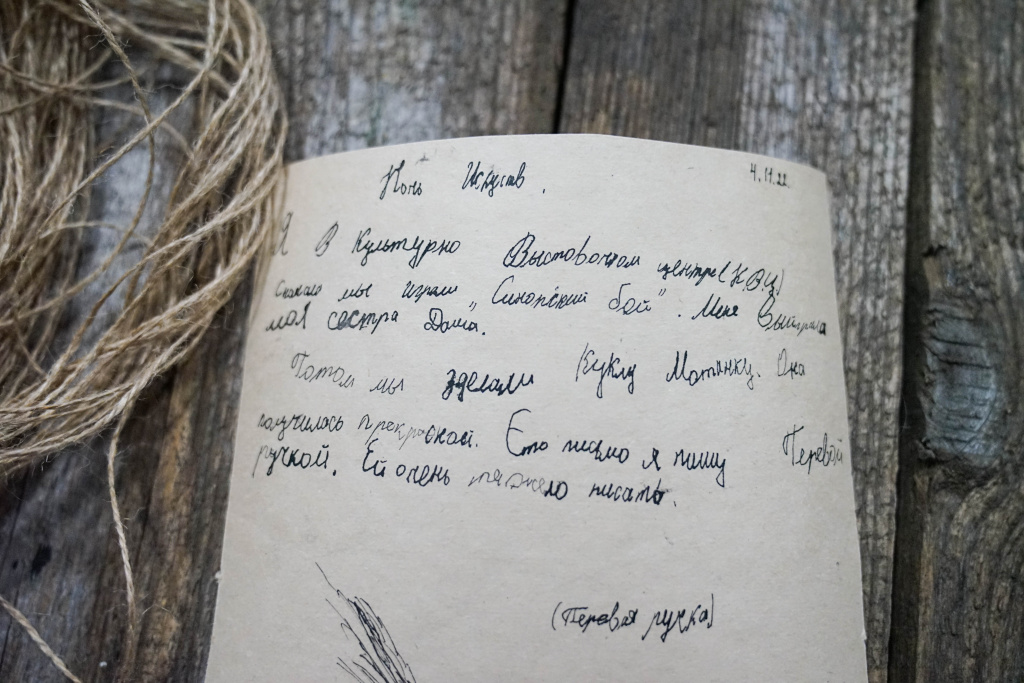 Ночь Искуств. 4.11.22
Я В Культурно Выстовочном центре(К.В.Ц)
Сначало мы играли "Синопский бой". Меня Выйграла
моя сестра Даша.
Потом мы зделали Куклу Мотанку. Она
получилась прекрасной. Ето письмо я пишу Перевой
ручкой. Ей очень тяжело писать.
(Перевая ручка)